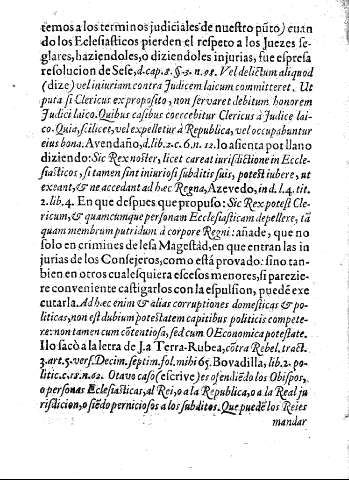 temos a los terminos judiciales de nuestro pũto) cuan
do los Eclesiasticos pierden el respeto a los Juezes se-
glares, haziendoles, o diziendoles injurias, fue espresa
resolucion de Sese, d. cap. 8. §. 3. n. 98. Vel delictum aliquod
(dize) vel iniuriam contra Judicem laicum committeret. Ut
puta si Clericus ex proposito, non servaret debitum honorem
Judici laico. Quibus casibus coercebitur Clericus à Judice lai-
co. Quia, scilicet, vel expelletur à Republica, vel occupabuntur
eius bona. Avendaño, d. lib. 2. c. 6. n. 12. lo asienta por llano
diziendo: Sic Rex noster, licet careat iurisdictione in Eccle-
siasticos, si tamen sint iniuriosi subditis suis, potest iubere, ut
exeant, & ne accedant ad hæc Regna, Azevedo, in d. l. 4. tit.
2. lib. 4. En que despues que propuso: Sic Rex potest Cle-
ricum, & quamcumque personam Ecclesiasticam depellere, tã
quam membrum putridum à corpore Regni: añade, que no
solo en crimines de lesa Magestad, en que entran las in
jurias de los Consejeros, como està provado: sino tan-
bien en otros cualesquiera escesos menores, si parezie-
re conveniente castigarlos con la espulsion, puedẽ exe
cutarla. Ad hæc enim & alias corruptiones domesticas & po-
liticas, non est dubium potestatem capitibus politicis compete-
re: non tamen cum cõtentiosa, sed cum Oeconomica potestate.
Ilo sacò a la letra de J. a Terra-Rubea, cõtra Rebel. tract.
3. art. 5. vers. Decim. septim. fol. mihi 65. Bovadilla, lib. 2. po-
litic. c. 18. n. 62. Otavo caso (escrive) es ofendiẽdo los Obispos,
o personas Eclesiasticas, al Rei, o a la Republica, o a la Real ju
risdicion, o siẽdo perniciosos a los subditos. Que puedẽ los Reies
mandar